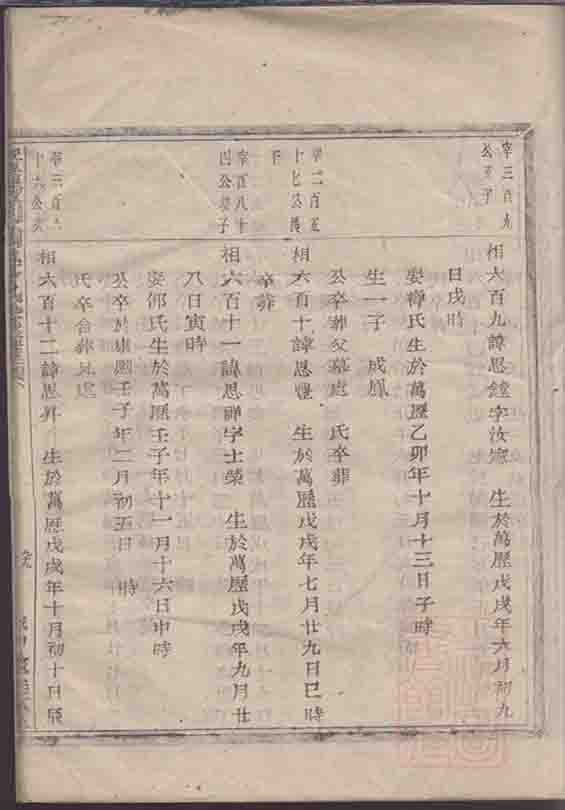 宰三百九
公長子
相六百九諱思鐘字汝 生於萬歷戊戌年六月初九
日戌時
娶 氏生於萬歷乙卯年十月十三日子時
生一子 成鳳
公卒葬父墓處 氏卒葬
宰二百五
十七公
子
相六百十諱思 生於萬歷戊戌年七月廿九日巳時
卒葬
宰百八十
四公 子
相六百十一諱思 字士榮 生於萬歷戊戌年九月廿
八日寅時
娶何氏生於萬歷壬子年十一月十六日申時
公卒於康熙壬子年二月初五日 時
氏卒合葬 處
宰三百六
十六公長
相六百十二諱思昇 生於萬歷戊戌年十月初十日辰